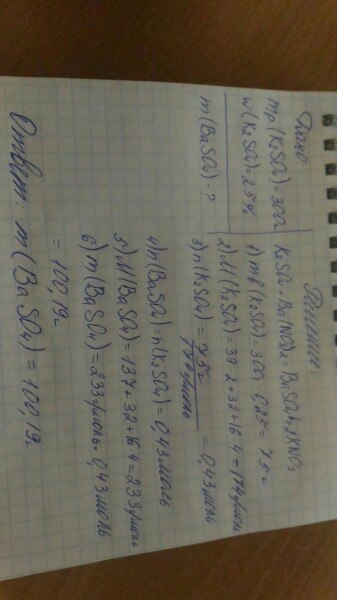 Дано:
mр(K2SO4)=300г
w(K2SO4)=25%
m(BaSO4)-?
Решение:
K2SO4+Ba(NO3)2=BaSO4+2KNO3
1) mв(K2SO4)=300г·0,25=75г
2) M(K2SO4)=39·2+32+16·4=174г/моль
3) n(K2SO4)=75г/174г/моль=0,43моль
4) n(BaSO4)=n(K2SO4)=0,43моль
5) M(BaSO4)=137+32+16·4=233г/моль
6) m(BaSO4)=233г/моль·0,43моль
=100,19г
Ответ: m(BaSO4)=100,19г